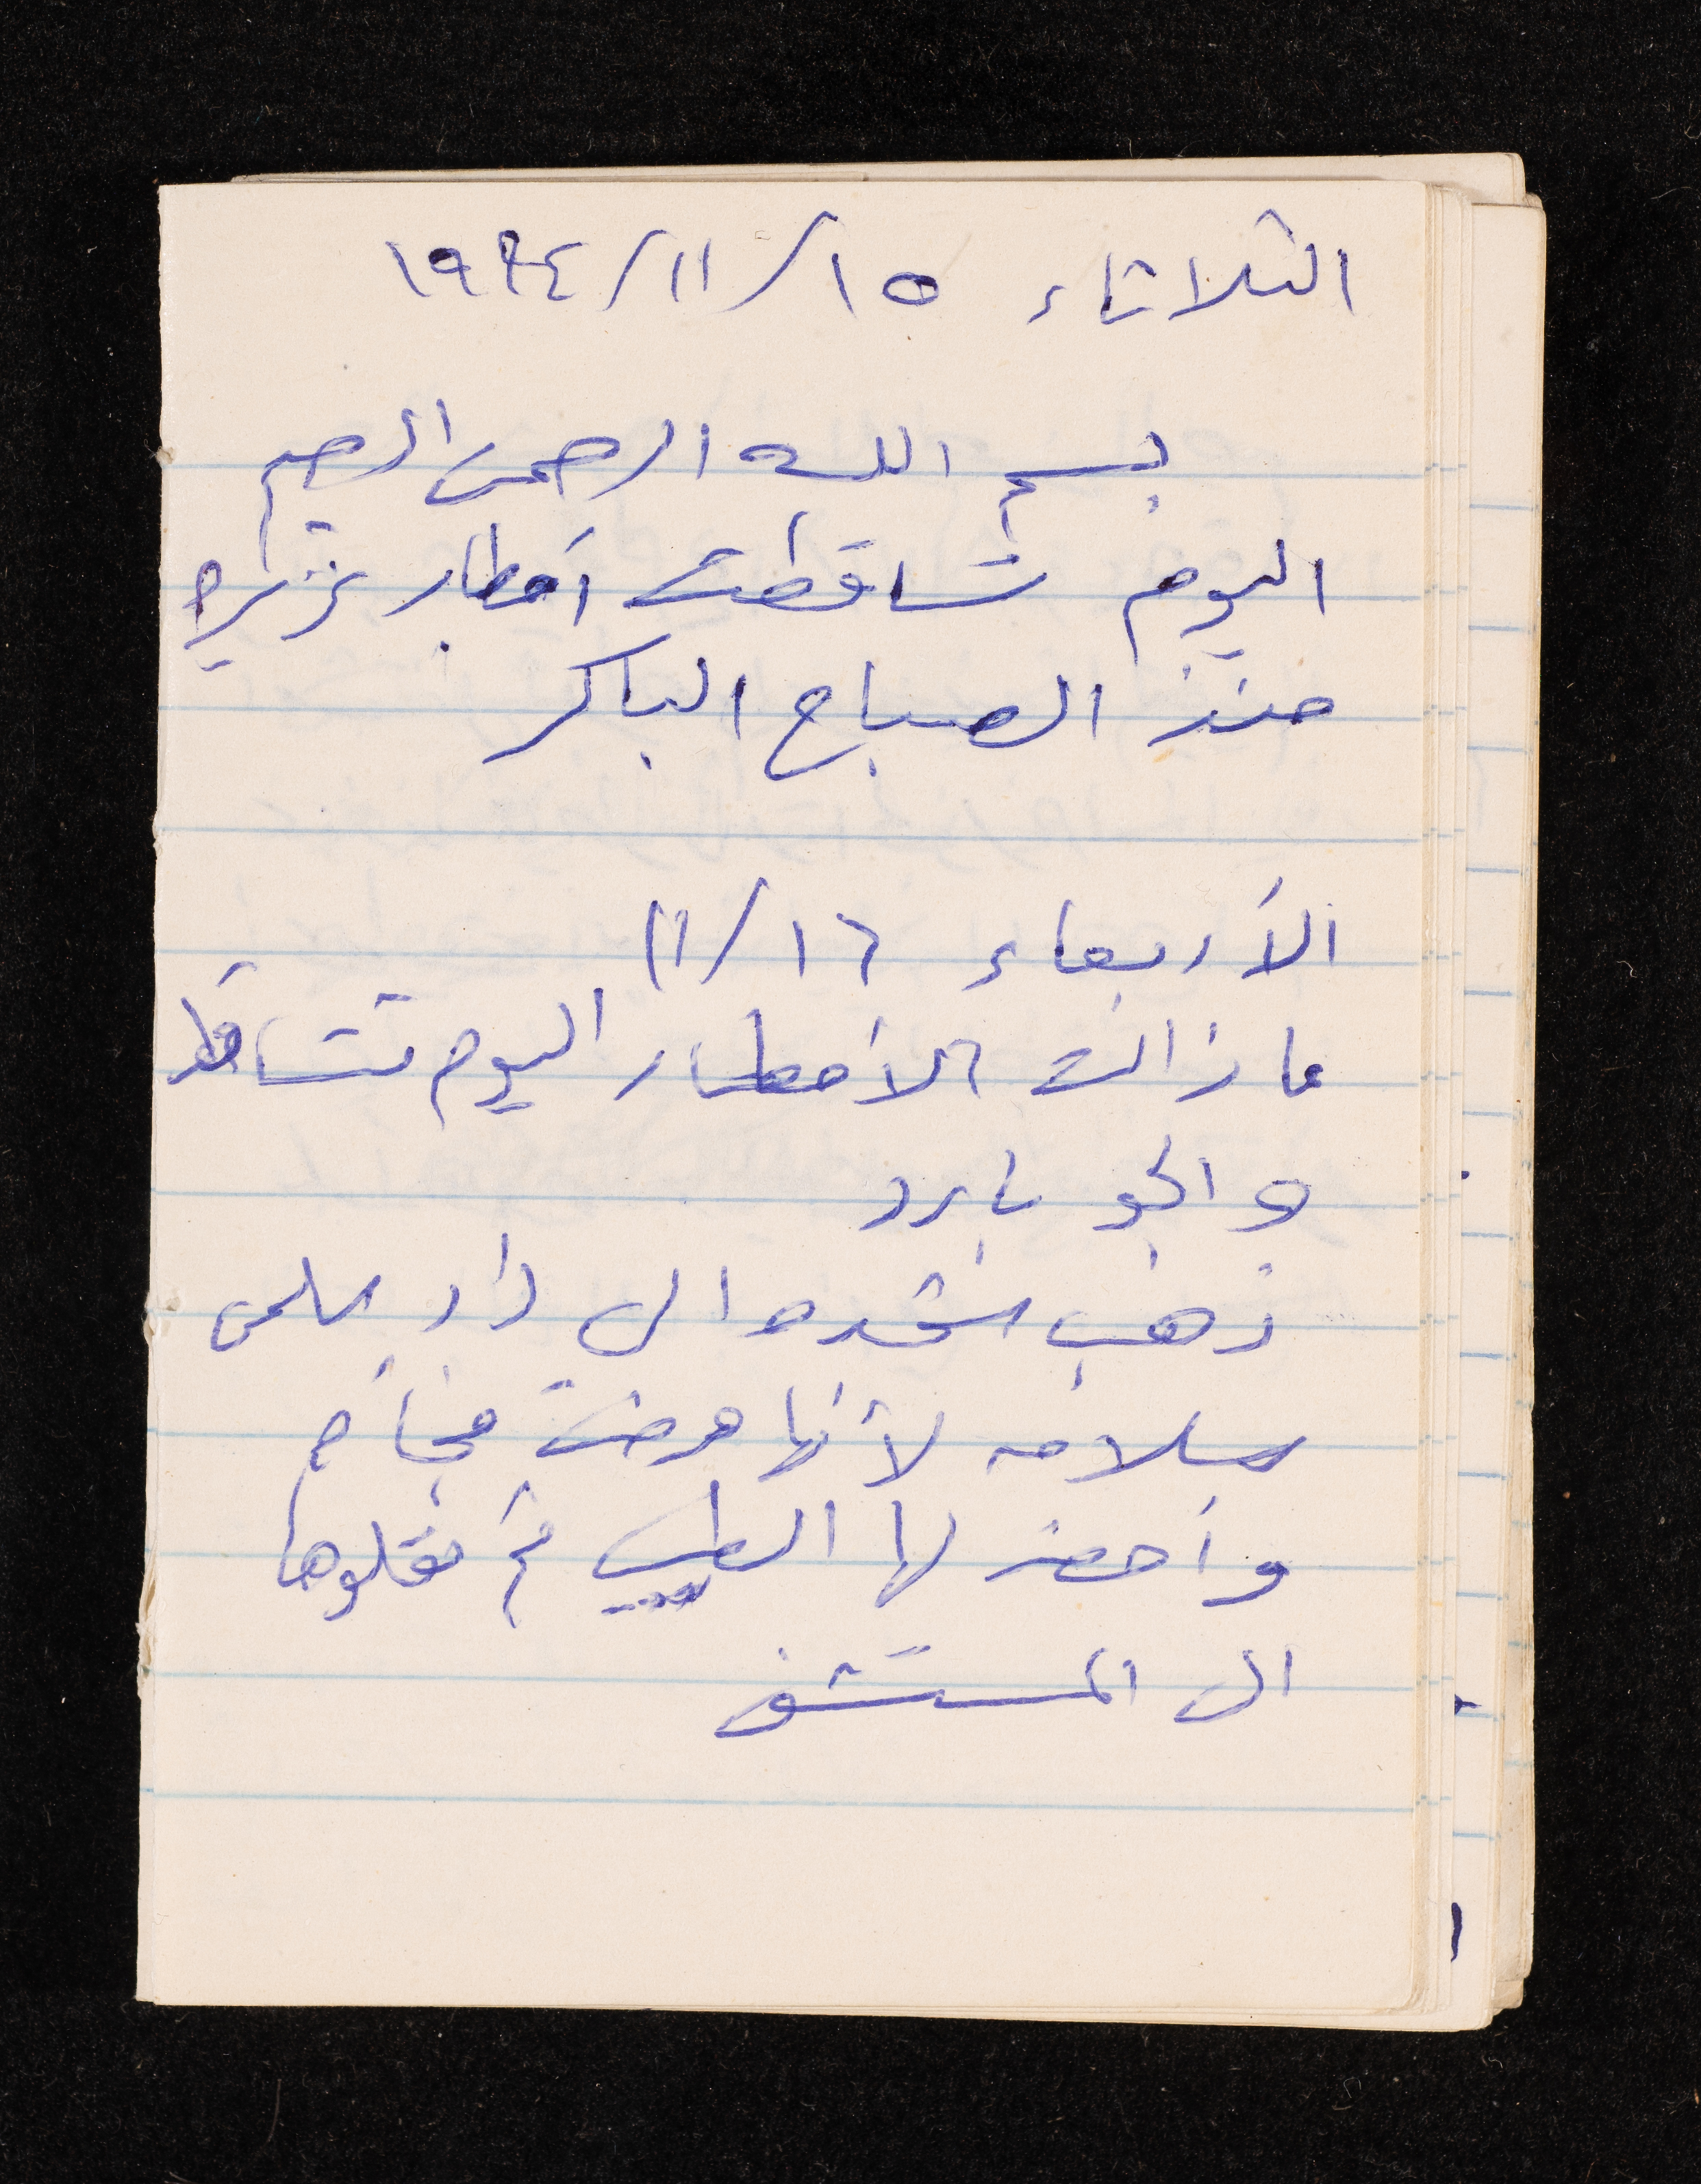 الثلاثاء ١٥/١١/١٩٩٤
بسم الله الرحمن الرحيم
اليوم تساقطت أمطار غزيره
منذ الصباح الباكر
الأربعاء ١٦/١١
ما زالت الأمطار اليوم تتساقط
والجو بارد
ذهب الى دار سلمى
سلامه لأنها مرضت فجأه
وأحضر لها الطبيب ثم نقلوها
الى المستشفى
١